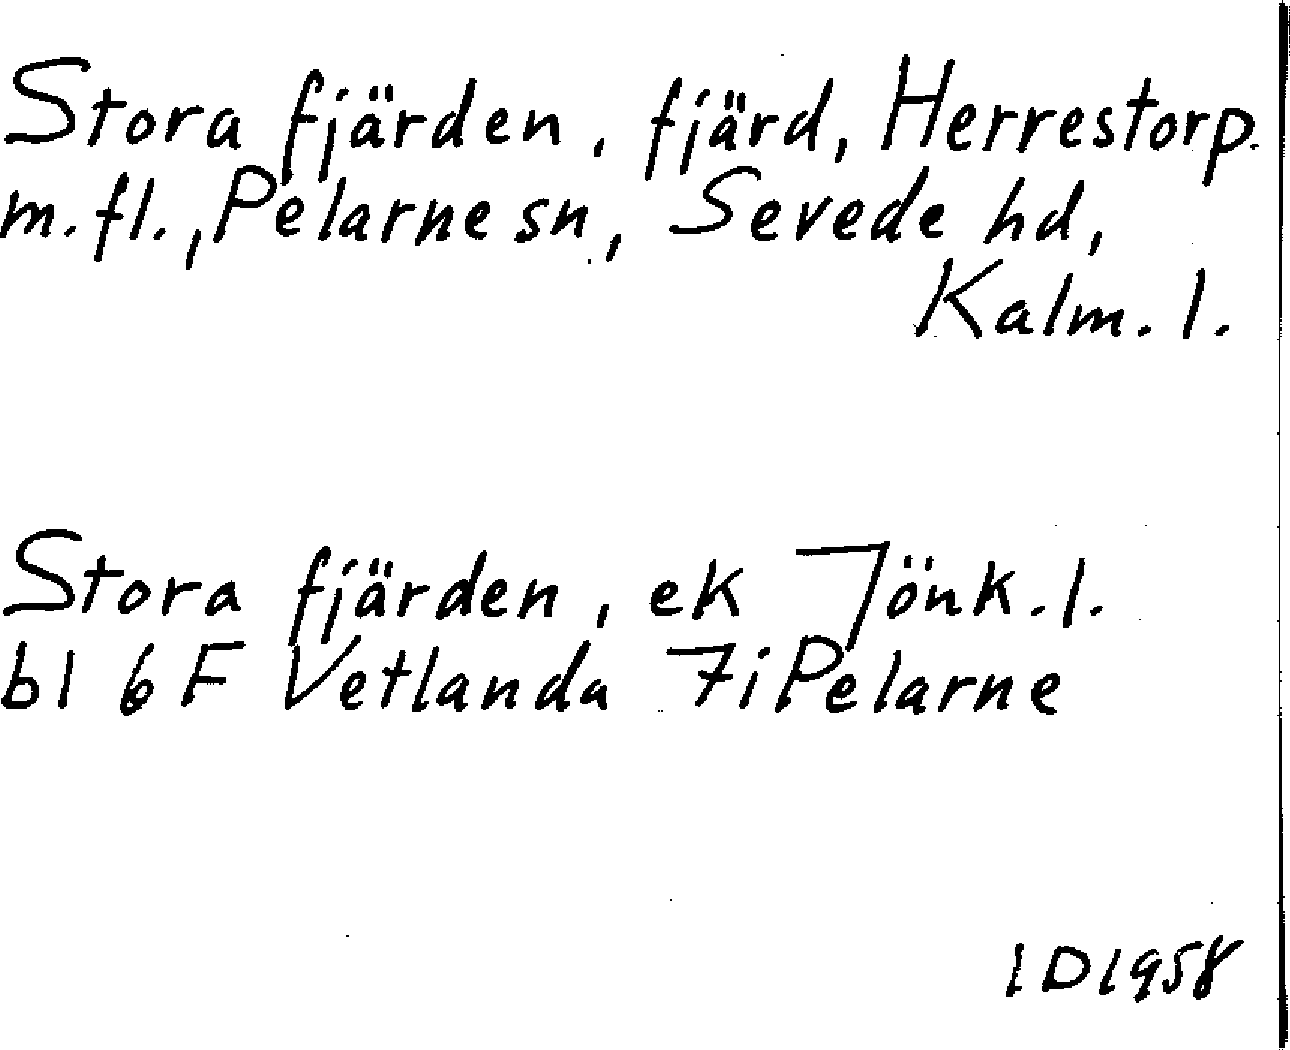 Stora fjärden, fjärd, Herrestorp
m.fl., Pelarne sn, Sevede hd,
Kalm. l.
Stora fjärden, ek Jönk. l.
bl 6 F Vetlanda 7i Pelarne
ID 1958